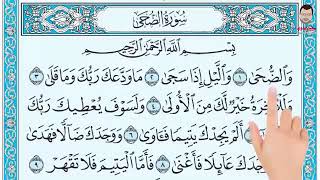 سُورَةُ الضُّحَى
بِسْمِ اللَّهِ الرَّحْمَٰنِ الرَّحِيمِ
وَالضُّحَى ١ وَاللَّيْلِ إِذَا سَجَى ٢ مَا وَدَّعَكَ رَبُّكَ وَمَا قَلَى ٣
وَلَلْآخِرَةُ خَيْرٌ لَّكَ مِنَ الْأُولَى ٤ وَلَسَوْفَ يُعْطِيكَ رَبُّكَ
أَلَمْ يَجِدْكَ يَتِيمًا فَآوَى ٦ وَوَجَدَكَ ضَالًّا فَهَدَى ٧
عَائِلًا فَأَغْنَى ٨ فَأَمَّا الْيَتِيمَ فَلَا تَقْهَرْ ٩